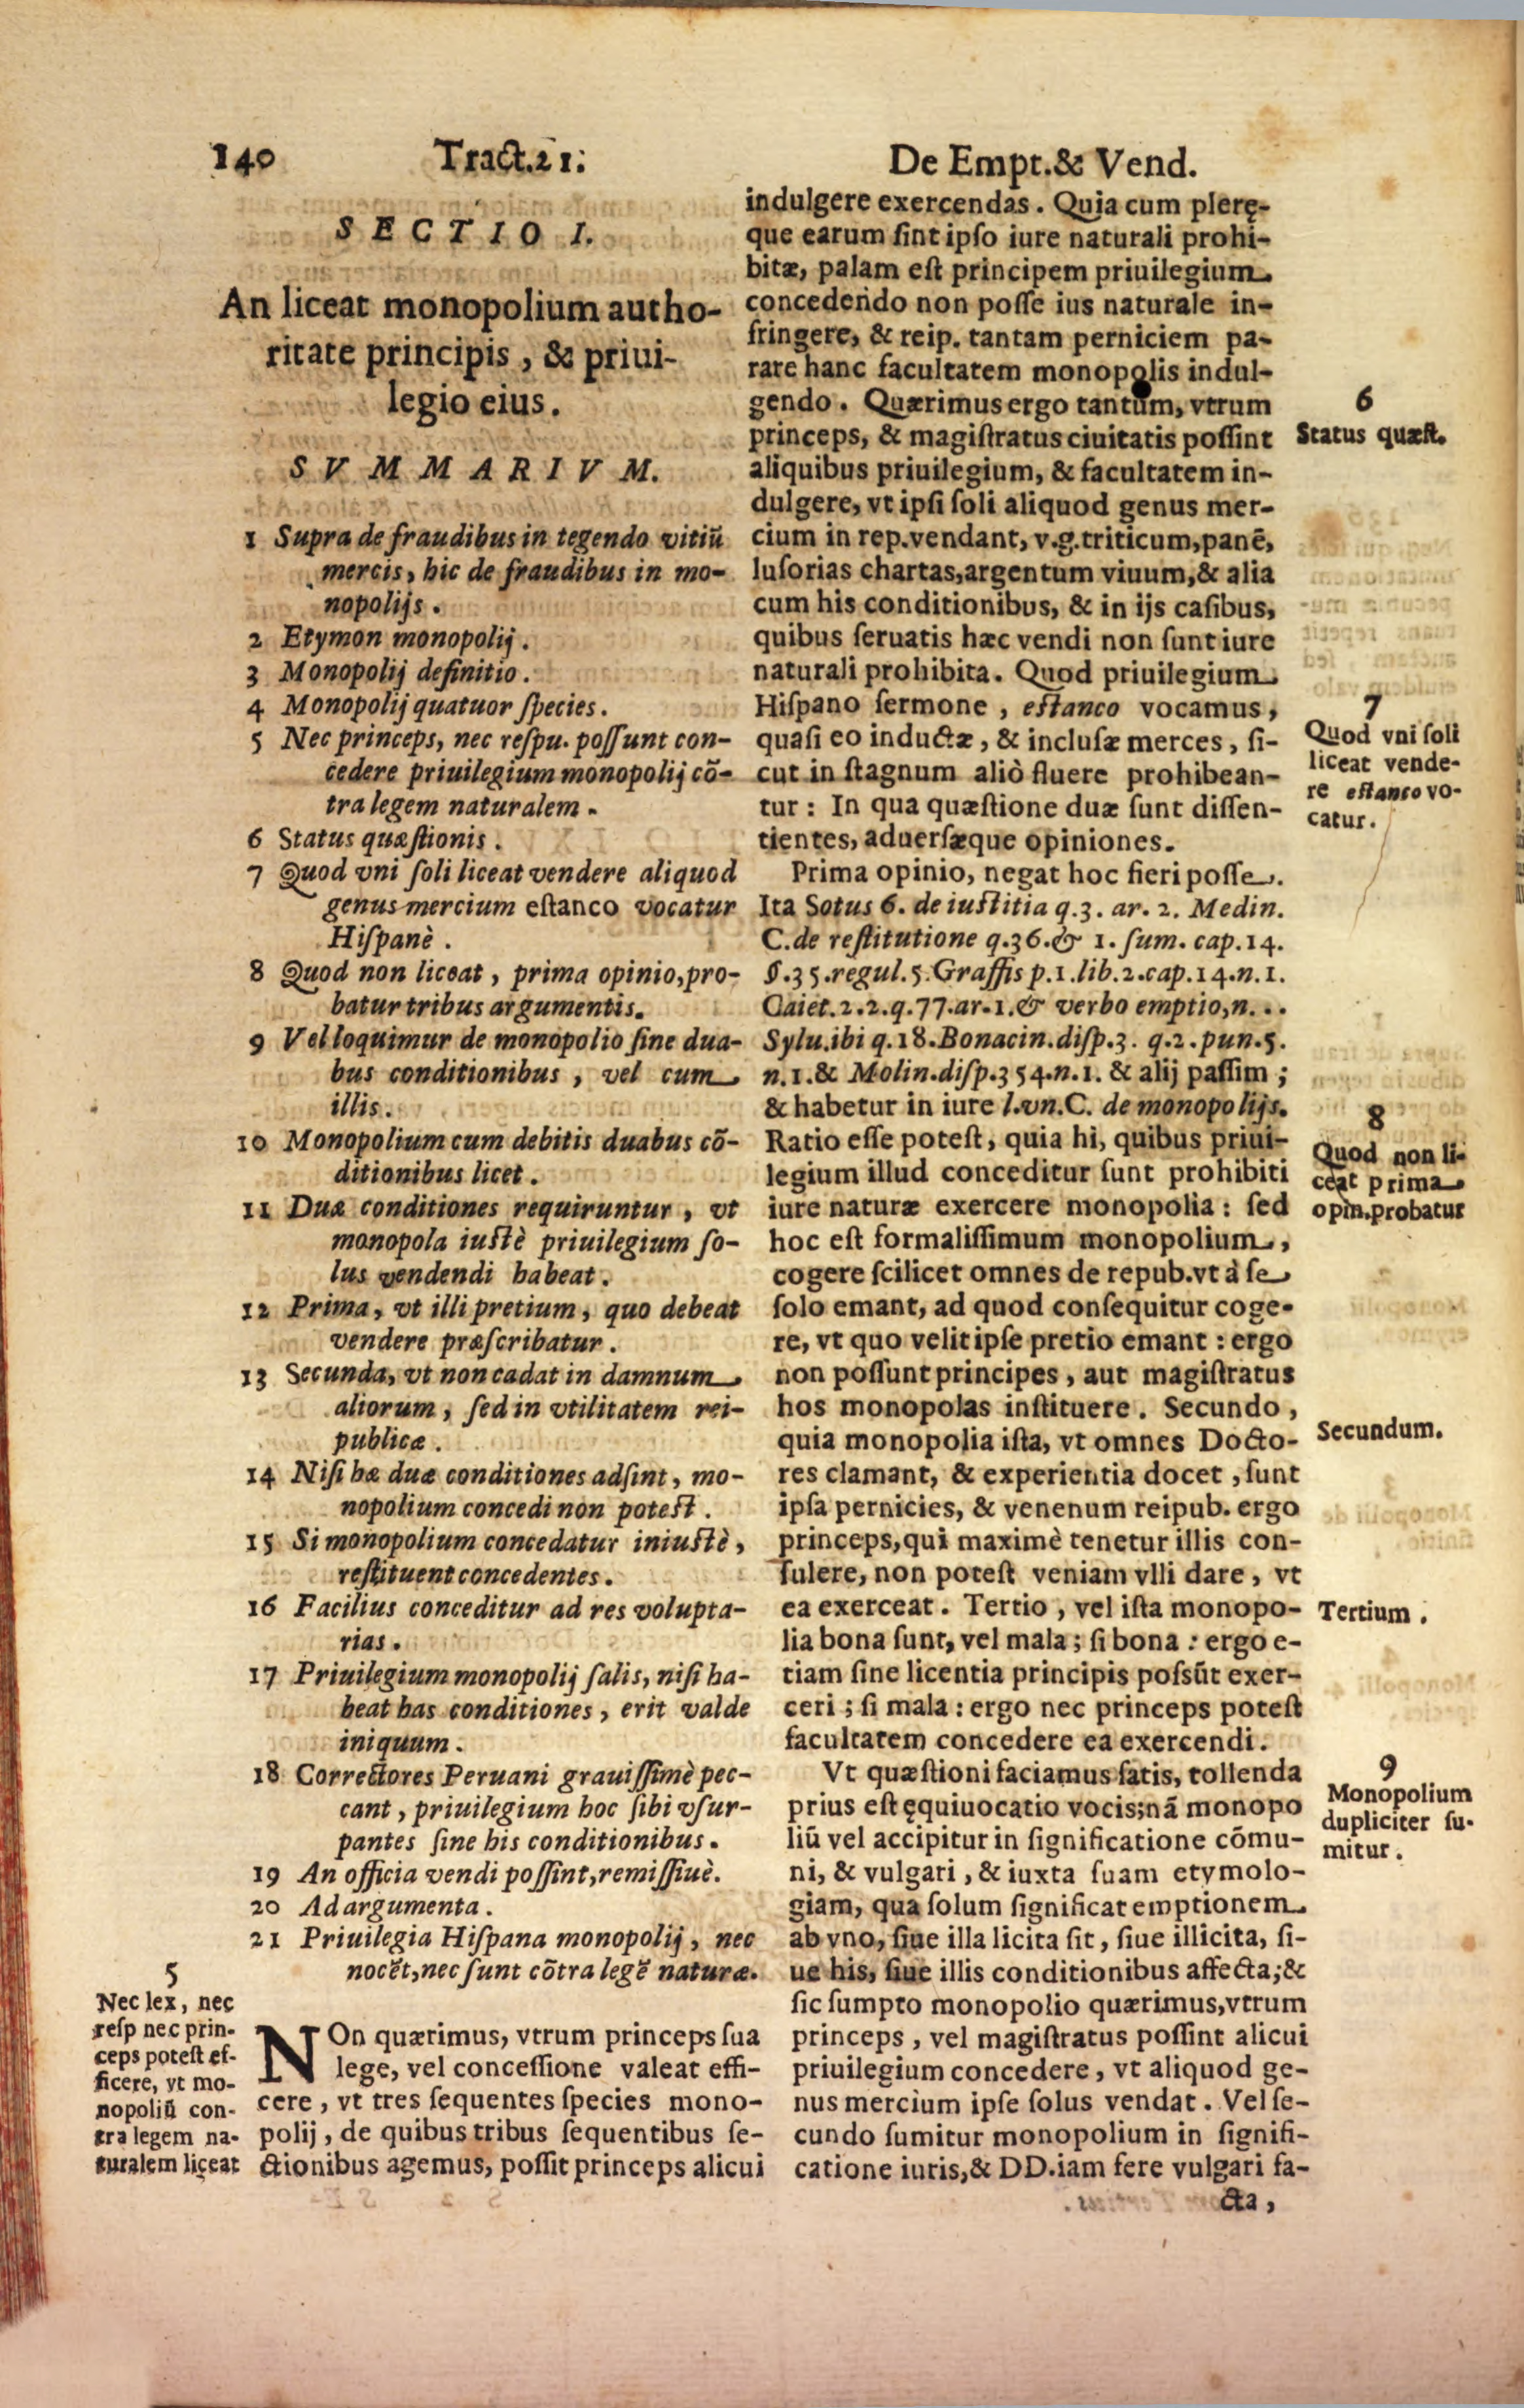 140 Tract.21. De Empt.& Vend.
SECTIO I.
An liceat monopolium autho-
ritate principis, & priui-
legio eius.
SVMMARIVM.
1 Supra de fraudibus in tegendo vitiũ
mercis, hic de fraudibus in mo-
nopolijs.
2 Etymon monopolij.
3 Monopolij definitio.
4 Monopolij quatuor ſpecies.
5 Nec princeps, nec reſpu. poſſunt con-
cedere priuilegium monopolij cõ-
tra legem naturalem.
6 Status quæſtionis.
7 Quod vni ſoli liceat vendere aliquod
genus mercium eſtanco vocatur
Hiſpanè.
8 Quod non liceat, prima opinio, pro-
batur tribus argumentis.
9 Vel loquimur de monopolio ſine dua-
bus conditionibus, vel cum
illis.
10 Monopolium cum debitis duabus cõ-
ditionibus licet.
11 Duæ conditiones requiruntur, vt
monopola iuſtè priuilegium ſo-
lus vendendi habeat.
12 Prima, vt illi pretium, quo debeat
vendere præſcribatur.
13 Secunda, vt non cadat in damnum
aliorum, ſed in vtilitatem rei-
publicæ.
14 Niſi hæ duæ conditiones adſint, mo-
nopolium concedi non poteſt.
15 Si monopolium concedatur iniuſtè,
reſtituent concedentes.
16 Facilius conceditur ad res volupta-
rias.
17 Priuilegium monopolij ſalis, niſi ha-
beat has conditiones, erit valde
iniquum.
18 Correctores Peruani grauiſſimè pec-
cant, priuilegium hoc ſibi vſur-
pantes ſine his conditionibus.
19 An officia vendi poſſint, remiſſiuè.
20 Ad argumenta.
21 Priuilegia Hiſpana monopolij, nec
nocẽt, nec ſunt cõtra legẽ naturæ.
5
Nec lex, nec
reſp nec prin-
ceps poteſt ef-
ficere, vt mo-
nopoliũ con-
tra legem na-
turalem liceat
NOn quærimus, vtrum princeps ſua
lege, vel conceſſione valeat effi-
cere, vt tres ſequentes ſpecies mono-
polij, de quibus tribus ſequentibus ſe-
ctionibus agemus, poſſit princeps alicui
indulgere exercendas. Quia cum plerę-
que earum ſint ipſo iure naturali prohi-
bitæ, palam eſt principem priuilegium
concedendo non poſſe ius naturale in-
fringere, & reip. tantam perniciem pa-
rare hanc facultatem monopolis indul-
gendo. Quærimus ergo tantum, vtrum
princeps, & magiſtratus ciuitatis poſſint
aliquibus priuilegium, & facultatem in-
dulgere, vt ipſi ſoli aliquod genus mer-
cium in rep. vendant, v.g. triticum, panẽ,
luſorias chartas, argentum viuum, & alia
cum his conditionibus, & in ijs caſibus,
quibus ſeruatis hæc vendi non ſunt iure
naturali prohibita. Quod priuilegium
Hiſpano ſermone, eſtanco vocamus,
quaſi eo inductæ, & incluſæ merces, ſi-
cut in ſtagnum aliò fluere prohibean-
tur: In qua quæſtione duæ ſunt diſſen-
tientes, aduerſæque opiniones.
Prima opinio, negat hoc fieri poſſe.
Ita Sotus 6. de iuſtitia q.3. ar. 2. Medin.
C. de reſtitutione q.36. & 1. ſum. cap.14.
§.35. regul.5. Graffis p.1. lib.2. cap.14. n.1.
Caiet. 2.2. q.77. ar.1. & verbo emptio, n...
Sylu. ibi q.18. Bonacin. diſp.3. q.2. pun.5.
n.1. & Molin. diſp.354. n.1. & alij paſſim;
& habetur in iure l. vn. C. de monopolijs.
Ratio eſſe poteſt, quia hi, quibus priui-
legium illud conceditur ſunt prohibiti
iure naturæ exercere monopolia: ſed
hoc eſt formaliſſimum monopolium,
cogere ſcilicet omnes de repub. vt à ſe
ſolo emant, ad quod conſequitur coge-
re, vt quo velit ipſe pretio emant: ergo
non poſſunt principes, aut magiſtratus
hos monopolas inſtituere. Secundo,
quia monopolia iſta, vt omnes Docto-
res clamant, & experientia docet, ſunt
ipſa pernicies, & venenum reipub. ergo
princeps, qui maximè tenetur illis con-
ſulere, non poteſt veniam vlli dare, vt
ea exerceat. Tertio, vel iſta monopo-
lia bona ſunt, vel mala; ſi bona: ergo e-
tiam ſine licentia principis poſsũt exer-
ceri; ſi mala: ergo nec princeps poteſt
facultatem concedere ea exercendi.
Vt quæſtioni faciamus ſatis, tollenda
prius eſt ęquiuocatio vocis; nã monopo
liũ vel accipitur in ſignificatione cõmu-
ni, & vulgari, & iuxta ſuam etymolo-
giam, qua ſolum ſignificat emptionem
ab vno, ſiue illa licita ſit, ſiue illicita, ſi-
ue his, ſiue illis conditionibus affecta; &
ſic ſumpto monopolio quærimus, vtrum
princeps, vel magiſtratus poſſint alicui
priuilegium concedere, vt aliquod ge-
nus mercium ipſe ſolus vendat. Vel ſe-
cundo ſumitur monopolium in ſignifi-
catione iuris, & DD. iam fere vulgari fa-
cta,
6
Status quæſt.
7
Quod vni ſoli
liceat vende-
re eſtanco vo-
catur.
8
Quod non li-
ceat prima
opin. probatur
Secundum.
Tertium.
9
Monopolium
dupliciter ſu-
mitur.